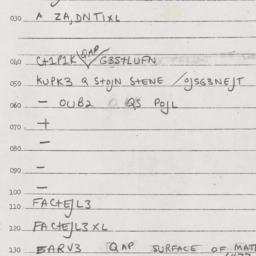 030 A ZA,DNTIXL
040 C+1P1K QAP /G3S+LUFN
050 KUPK3 Q S+OJN S+ENE /OJSG3NEJT
060 — OUB2 QS POJL
070 +
080 —
090 —
100 —
110 FAC+EJL3
120 FAC+EJL3XL
130 EARV3 QAP SURFACE OF MAT